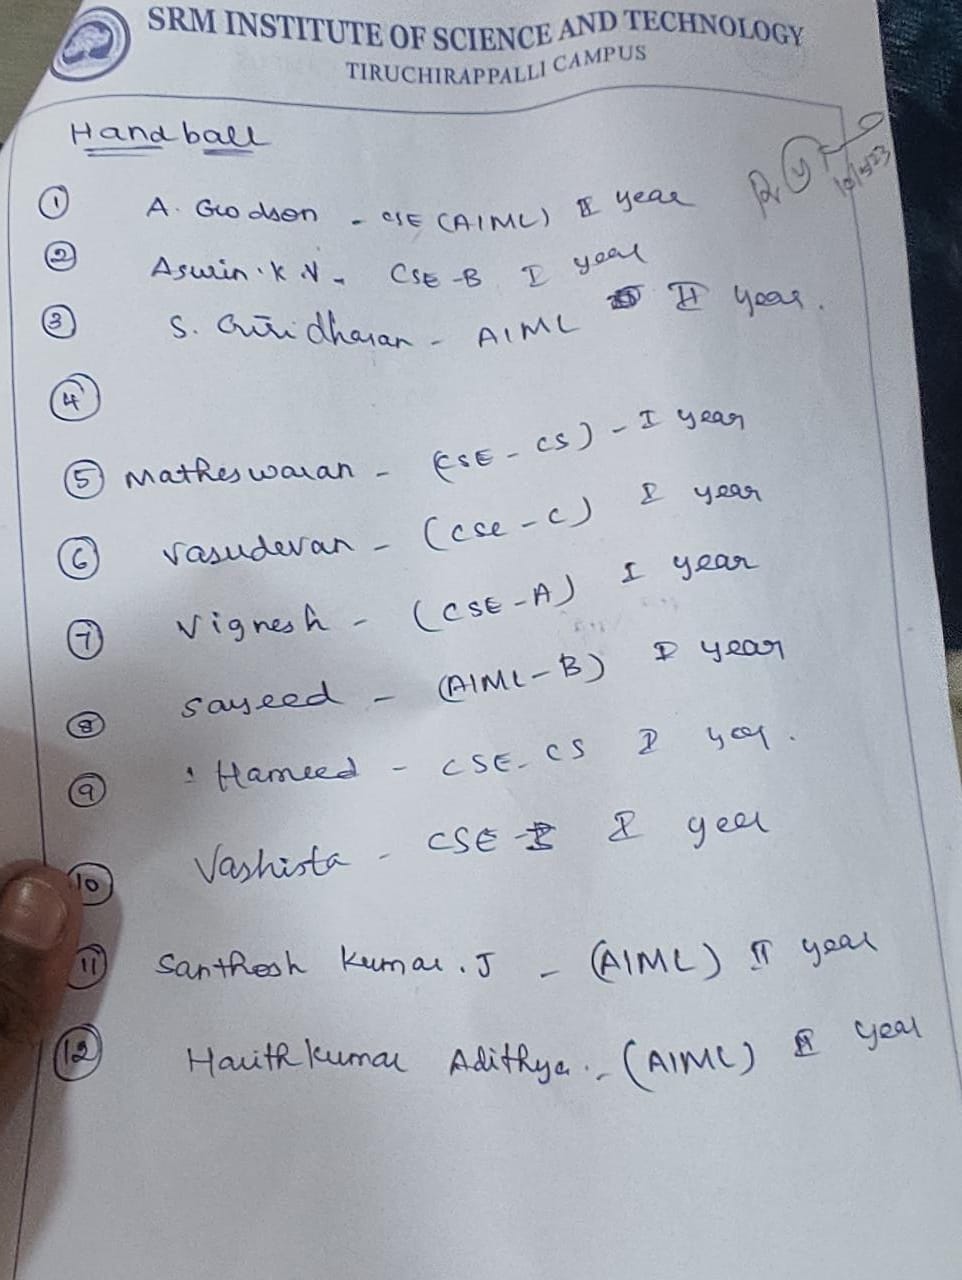 SRM INSTITUTE OF SCIENCE AND TECHNOLOGY
TIRUCHIRAPPALLI CAMPUS
Handball
① A. Godson - CSE (AIML) II year
② Aswin.K.V - CSE-B I year
③ S. Giridharan - AIML II year.
④
⑤ Matheswaran - (CSE - CS) - I year
⑥ Vasudevan - (CSE - C) I year
⑦ Vignesh - (CSE-A) I year
⑧ Sayeed - (AIML-B) I year
⑨ Hameed - CSE-CS I year.
⑩ Vashista - CSE- I year
⑪ Santhosh Kumar.J - (AIML) II year
⑫ Harithkumar Adithya - (AIML) II year